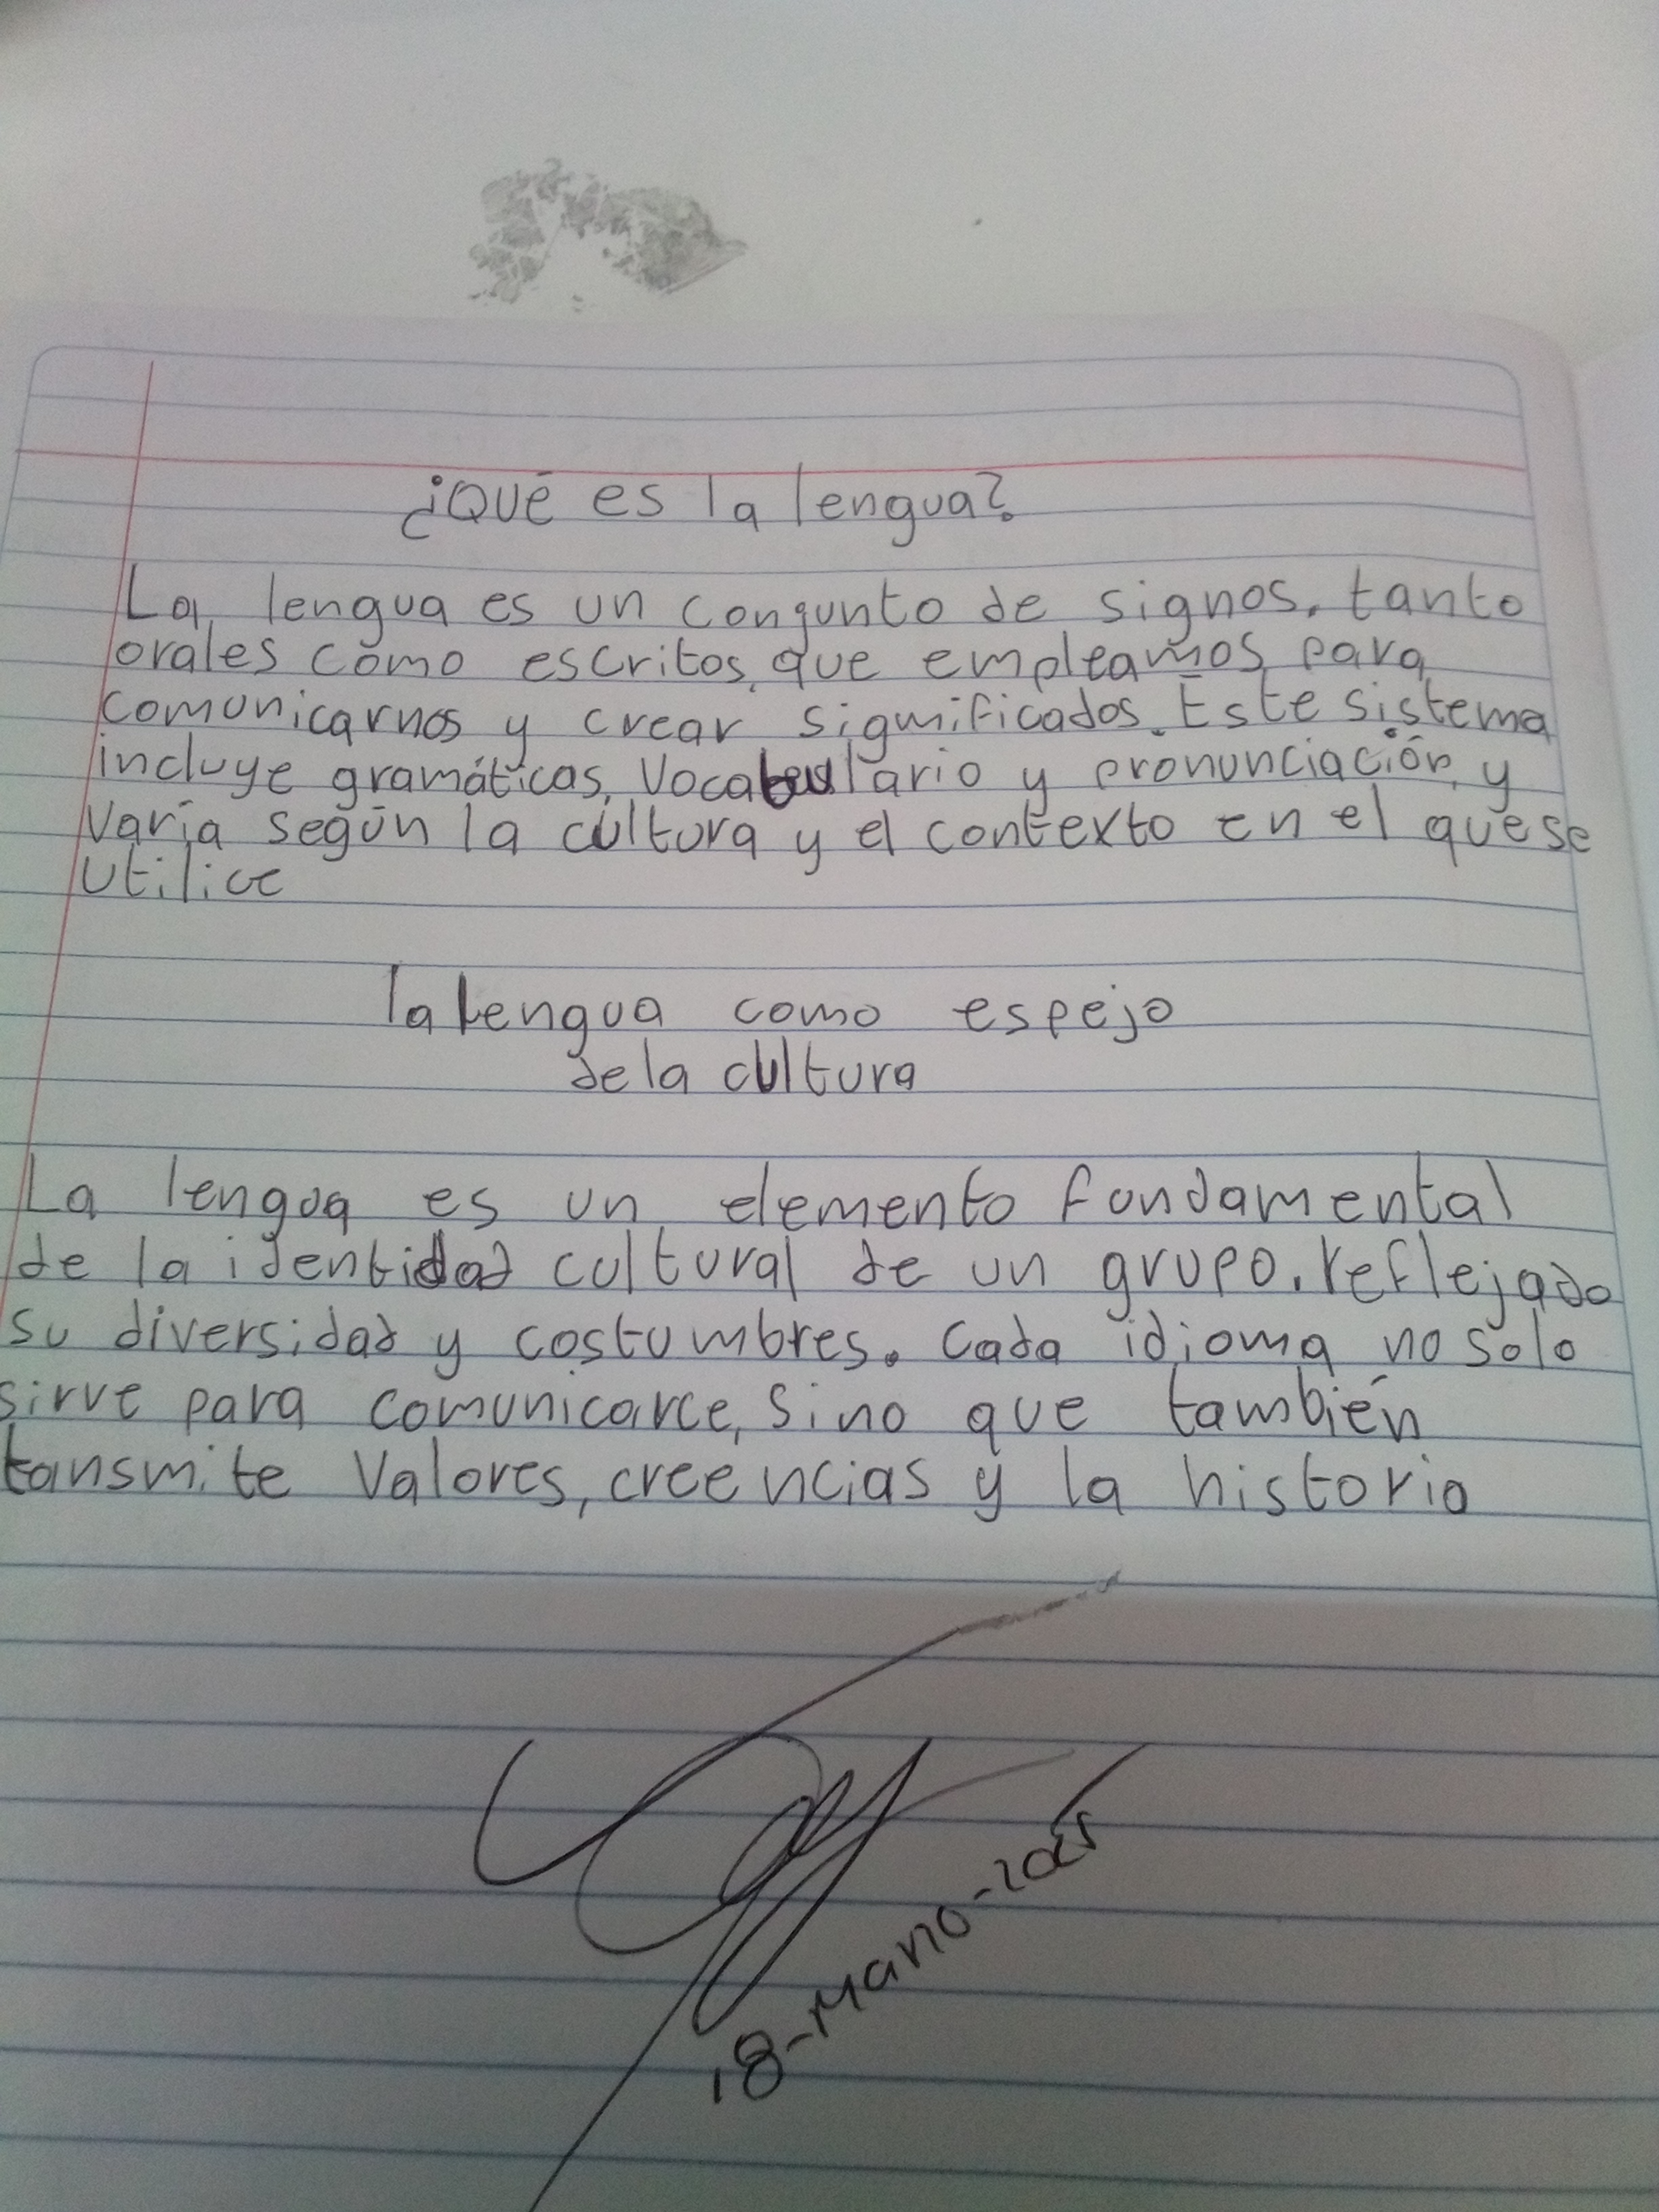 ¿Qué es la lengua?
La lengua es un conjunto de signos, tanto
orales como escritos, que empleamos para
comunicarnos y crear significados. Este sistema
incluye gramáticas, vocabulario y pronunciación, y
varía según la cultura y el contexto en el que se
utilice
la lengua como espejo
de la cultura
La lengua es un elemento fundamental
de la identidad cultural de un grupo, reflejado
su diversidad y costumbres. Cada idioma no solo
sirve para comunicarce, sino que también
tansmite valores, creencias y la historia
18-Marzo-2025